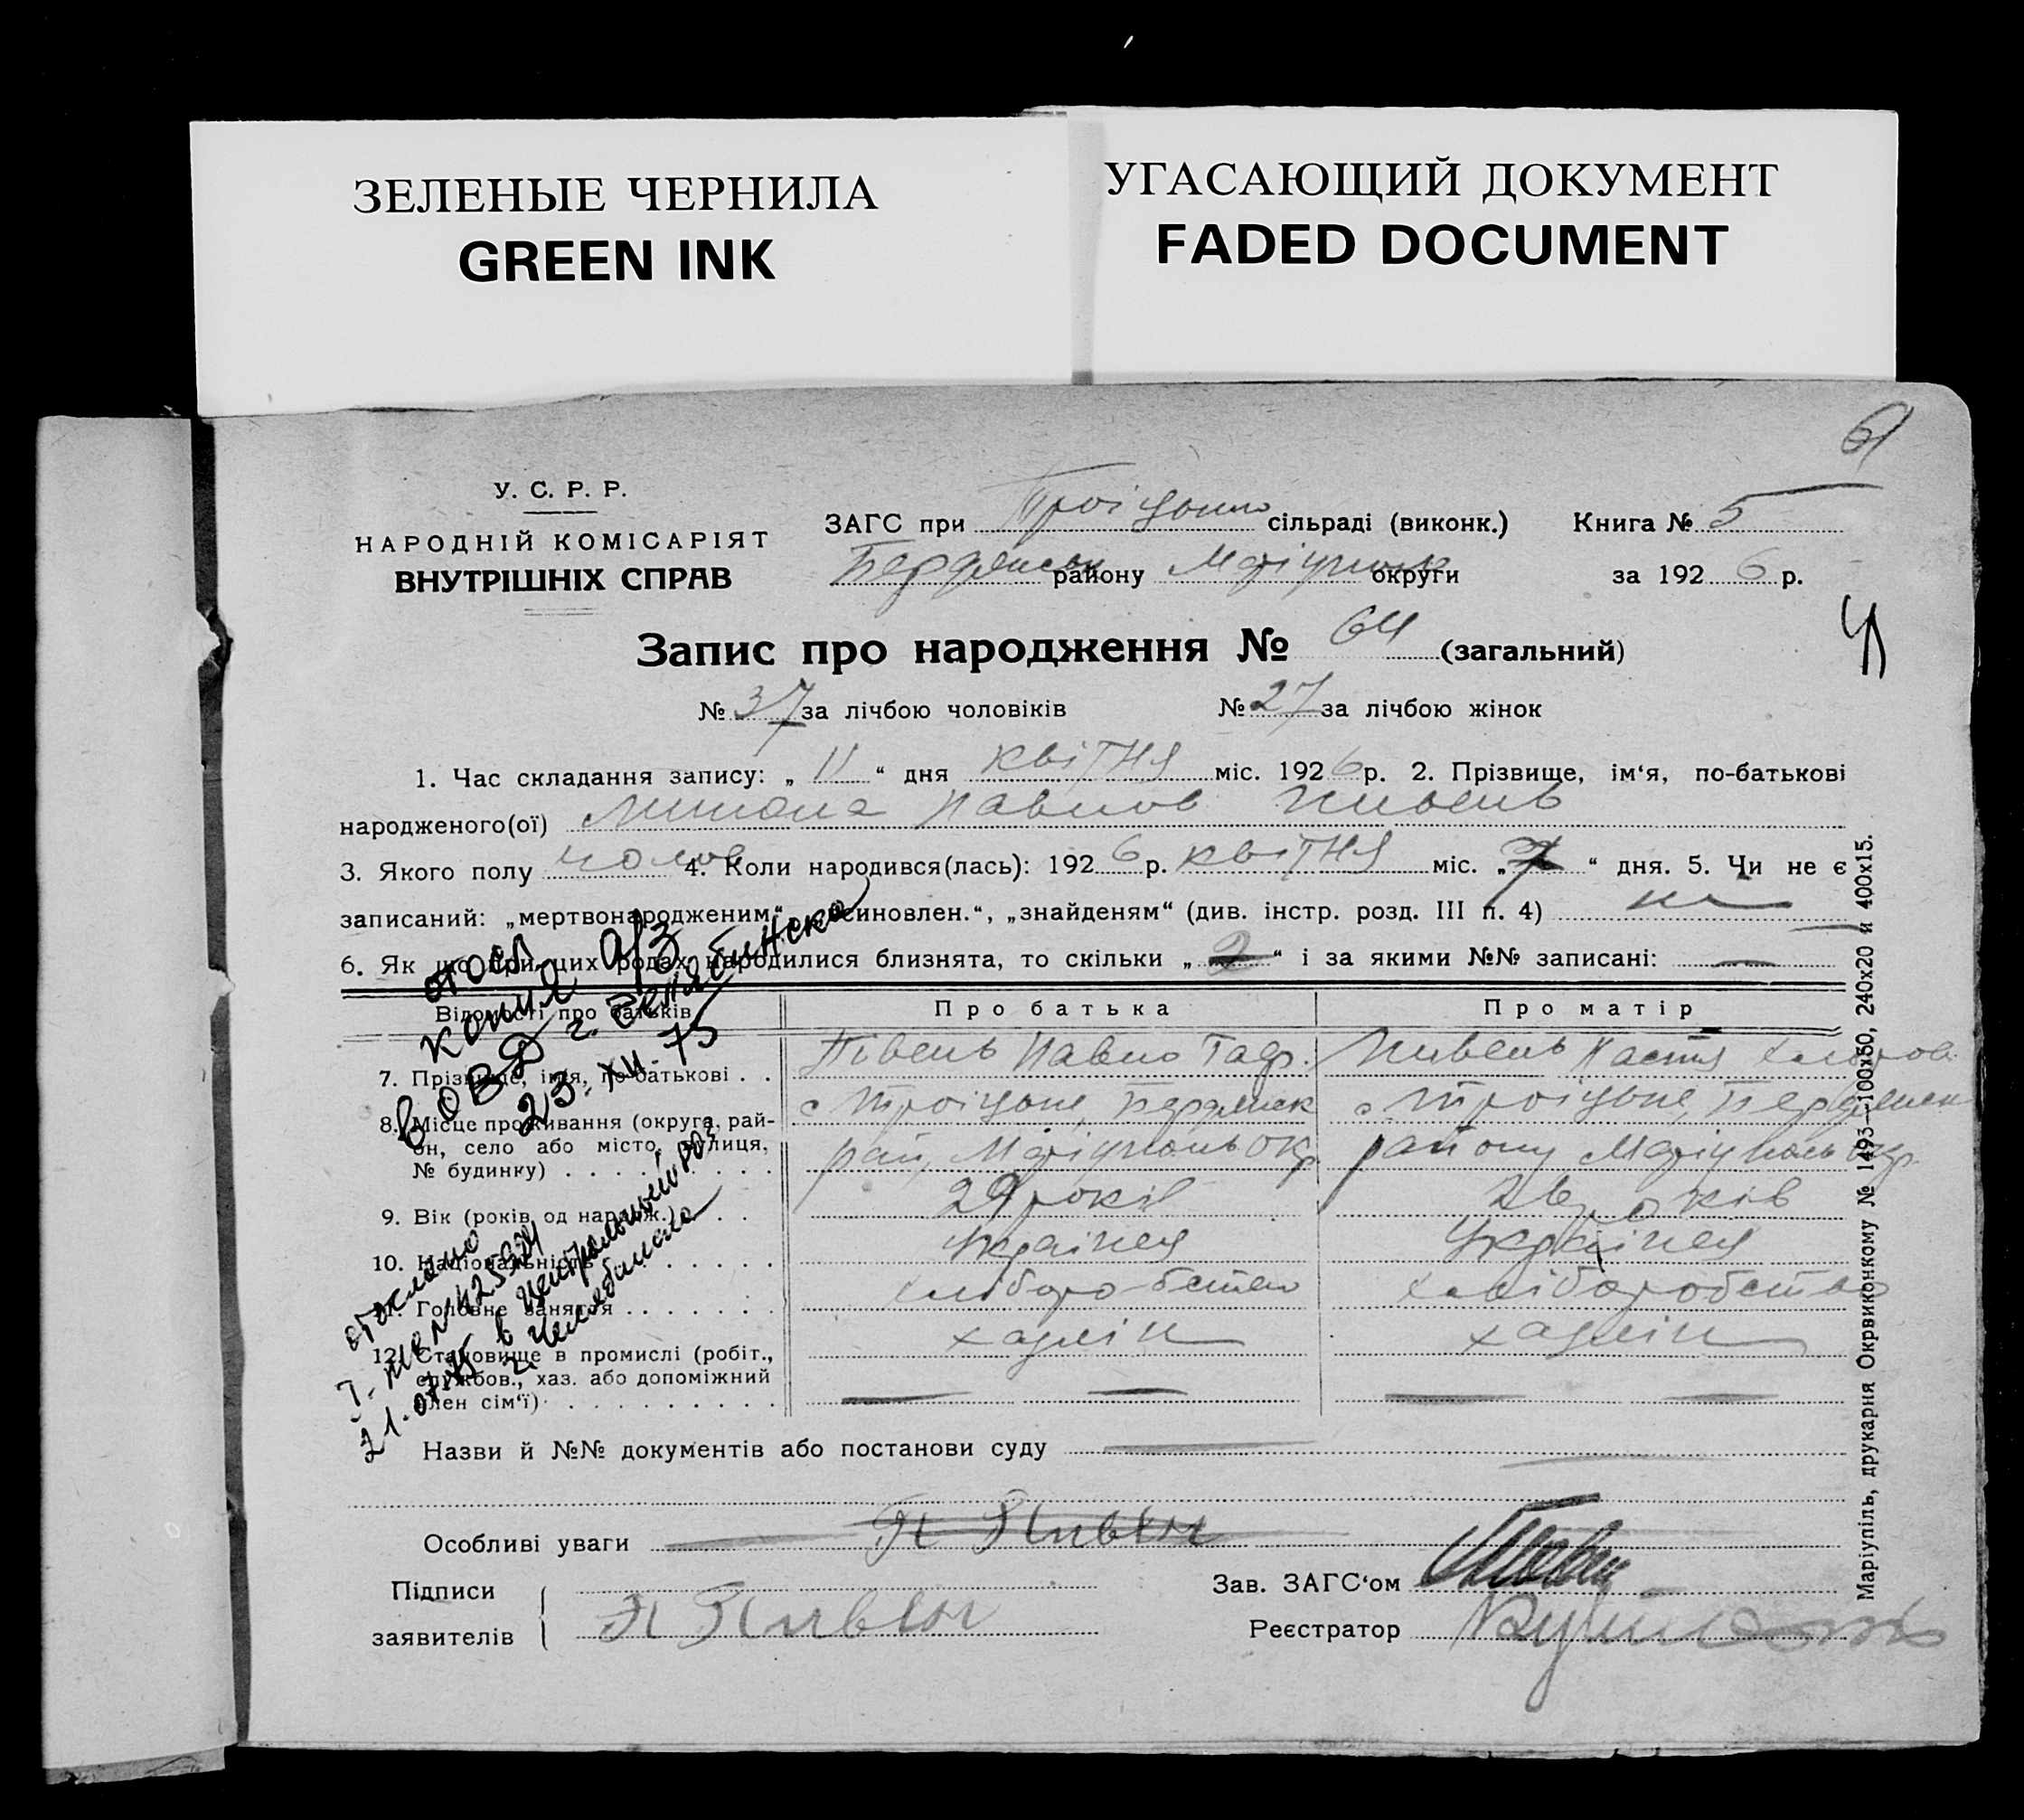 ЗЕЛЕНЫЕ ЧЕРНИЛА
GREEN INK
УГАСАЮЩИЙ ДОКУМЕНТ
FADED DOCUMENT
У. С. Р. Р.
НАРОДНІЙ КОМІСАРІЯТ
ВНУТРІШНІХ СПРАВ
ЗАГС при Троіцьк сільраді (виконк.) Книга № 5
Бердянськ району Маріупольськ округи за 1926 р.
Запис про народження № 64 (загальний)
№ 37 за лічбою чоловіків № 27 за лічбою жінок
1. Час складання запису: „ 11 “ дня квітня міс. 1926 р. 2. Прізвище, ім‘я, по-батькові
народженого(ої) Микола Павлов Пивень
3. Якого полу чолов 4. Коли народився(лась): 1926 р. квітня міс. „ 7 “ дня. 5. Чи не є
записаний: „мертвонародженим“, „усиновлен.“, „знайденям“ (див. інстр. розд. III п. 4) ні
6. Як що при цих родах народилися близнята, то скільки „ “ і за якими №№ записані: —
Відомості про батьків
Про батька
Про матір
7. Прізвище, імя, по-батькові . .
Півень Павло Гавр.
Пивень Настя
8. Місце проживання (округа, рай-
он, село або місто, вулиця,
№ будинку) . . . . . . . . . .
с Троіцьке, Бердянськ
рай, Маріуполь окр
с Троіцьке, Бердянськ
району Маріуполь окр
9. Вік (років од народж.) . . .
29 років
26 років
10. Національність . . . . . . .
Украінец
Украінец
11. Головне заняття . . . . . . .
хліборобство
хліборобство
12. Становище в промислі (робіт.,
службов., хаз. або допоміжний
член сім‘ї) . . . . . . . . . .
хазяін
хазяін
копия а/з
в ОВД г. Челябинска
23.XII.75
отослано
21.07.75 в Центральный
г. Челябинска
Назви й №№ документів або постанови суду
Особливі уваги П Пивень
Підписи
заявителів
П Пивень
Зав. ЗАГС‘ом
Реєстратор
Маріупіль, друкарня Окрвиконкому № 1493—100x50, 240x20 и 400x15.